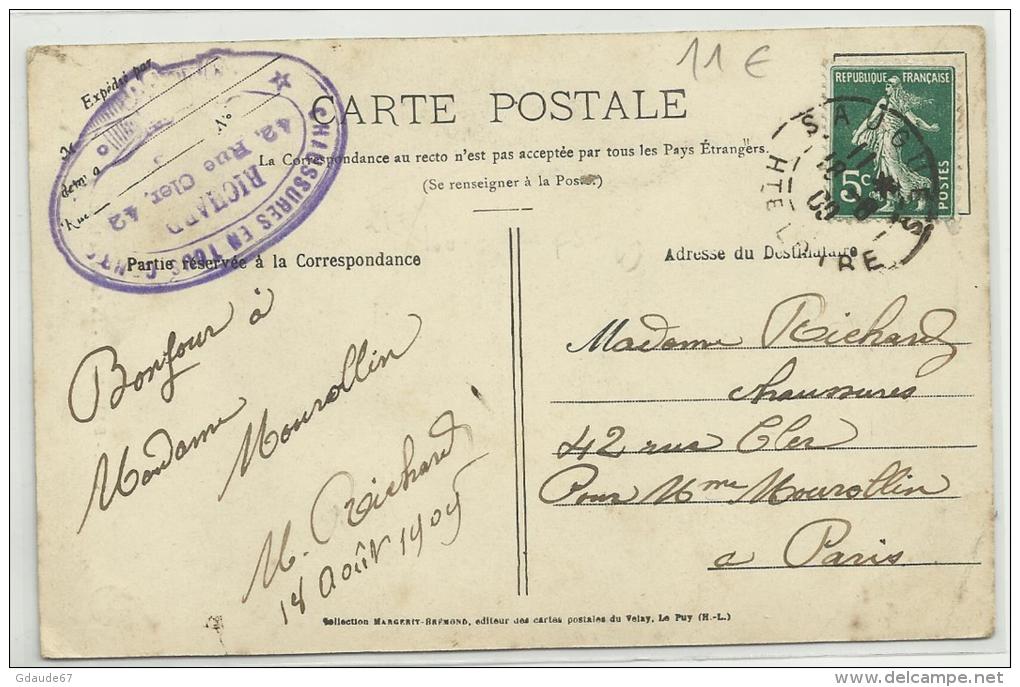 11 €
Expédié par
CARTE POSTALE
La Correspondance au recto n'est pas acceptée par tous les Pays Étrangers.
(Se renseigner à la Poste)
CHAUSSURES EN TOUS
RICHARD
42, Rue Cler, 42
N°
Rue
RÉPUBLIQUE FRANÇAISE
5c
POSTES
SAUGUES
HTE LOIRE
Partie réservée à la Correspondance
Adresse du Destinataire
Bonjour à
Madame
Mourollin
M. Richard
14 Août 1909
Madame Richard
chaussures
42 rue Cler
Pour Mme Mourollin
a Paris
Collection MARGERIT-BRÉMOND, editeur des cartes postales du Velay, Le Puy (H.-L.)
Gdaude67